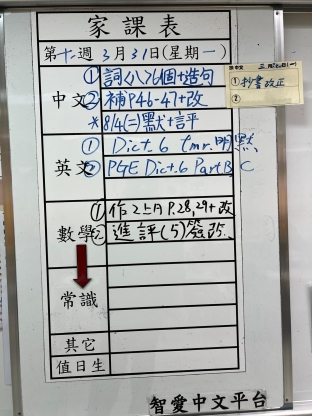 家課表
第十二週 3月31日(星期一)
中文
①詞<八>6個+造句
②補P46-47+改
*8/4(二)默+評
三月三十一日(一)
①抄書改正
②
英文
① Dict.6 tmr.明默
② PGE Dict.6 Part B C
數學
①作2上A P.28,29+改
②進評(5)簽改
常識
其它
值日生
智愛中文平台